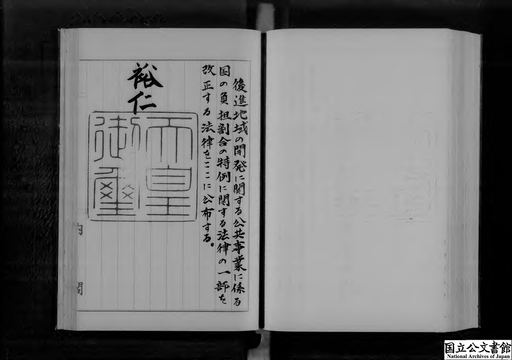 後進地域の開発に関する公共事業に係る
国の負担割合の特例に関する法律の一部を
改正する法律をここに公布する。
裕仁
天皇
御璽
内閣
国立公文書館
National Archives of Japan